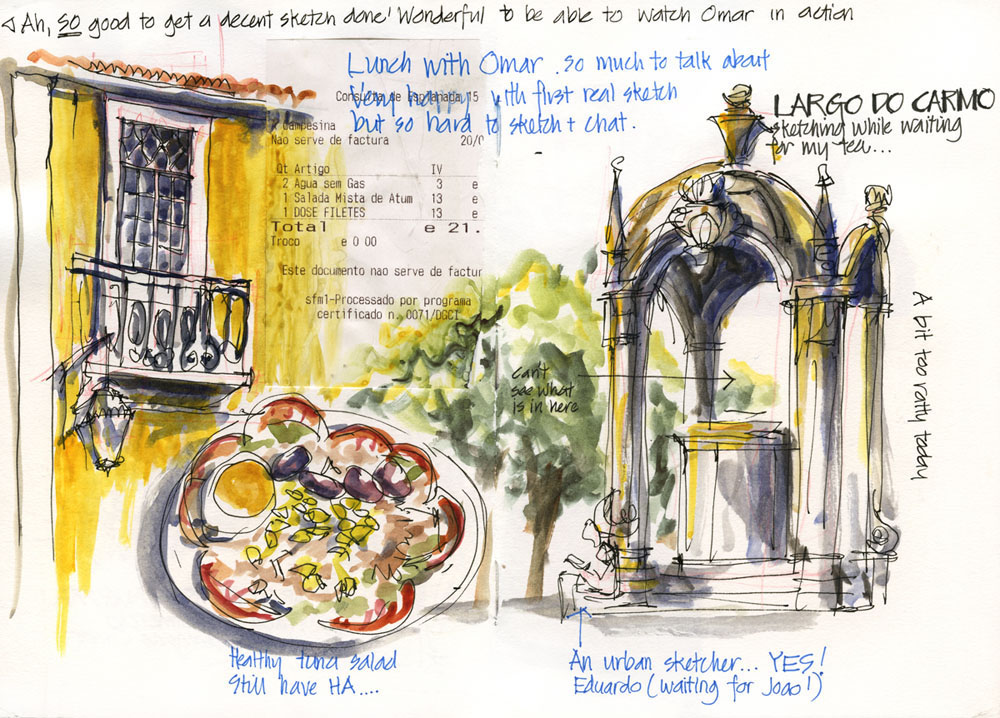 Ah, so good to get a decent sketch done! Wonderful to be able to watch Omar in action
Lunch with Omar. so much to talk about
Very happy with first real sketch
but so hard to sketch + chat.
Consulta de Esplanada 15
Campesina
Nao serve de factura 20/0
Qt Artigo IV
2 Agua sem Gas 3 e
1 Salada Mista de Atum 13 e
1 DOSE FILETES 13 e
Total e 21.
Troco e 0 00
Este documento nao serve de factur
sfm1-Processado por programa
certificado n. 0071/DGCI
LARGO DO CARMO
sketching while waiting
for my tea...
A bit too ratty today
can't
see what
is in here
Healthy tuna salad
Still have HA....
An urban sketcher... YES!
Eduardo (waiting for Joao!)